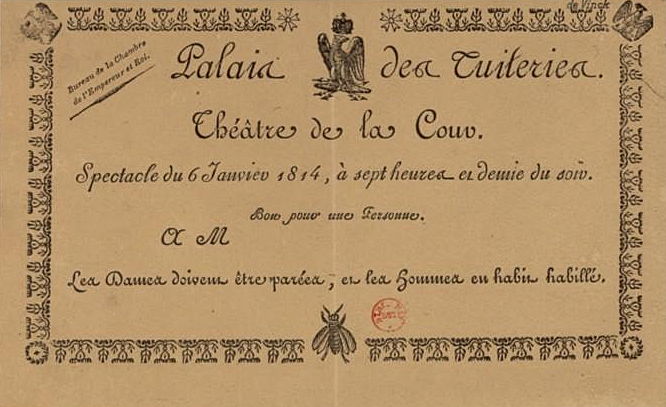 de Vinck
Bureau de la Chambre
de l'Empereur et Roi.
Palais des Tuileries.
Théâtre de la Cour.
Spectacle du 6 Janvier 1814, à sept heures et demie du soir.
Bon pour une Personne.
A M
Les Dames doivent être parées, et les Hommes en habit habillé.